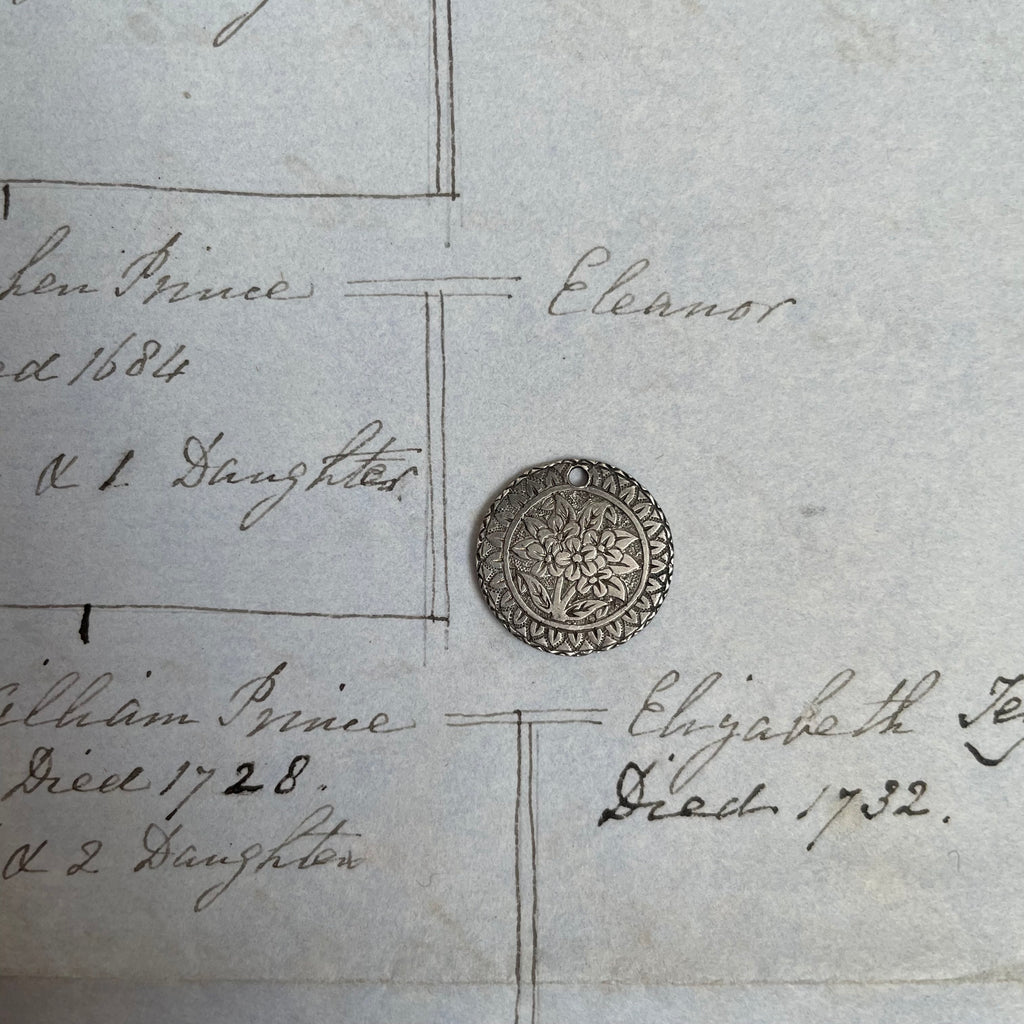 hen Prince Eleanor
ed 1684
& 1 Daughter.
illiam Prince Elizabeth Te
Died 1728. Died 1732.
& 2 Daughter